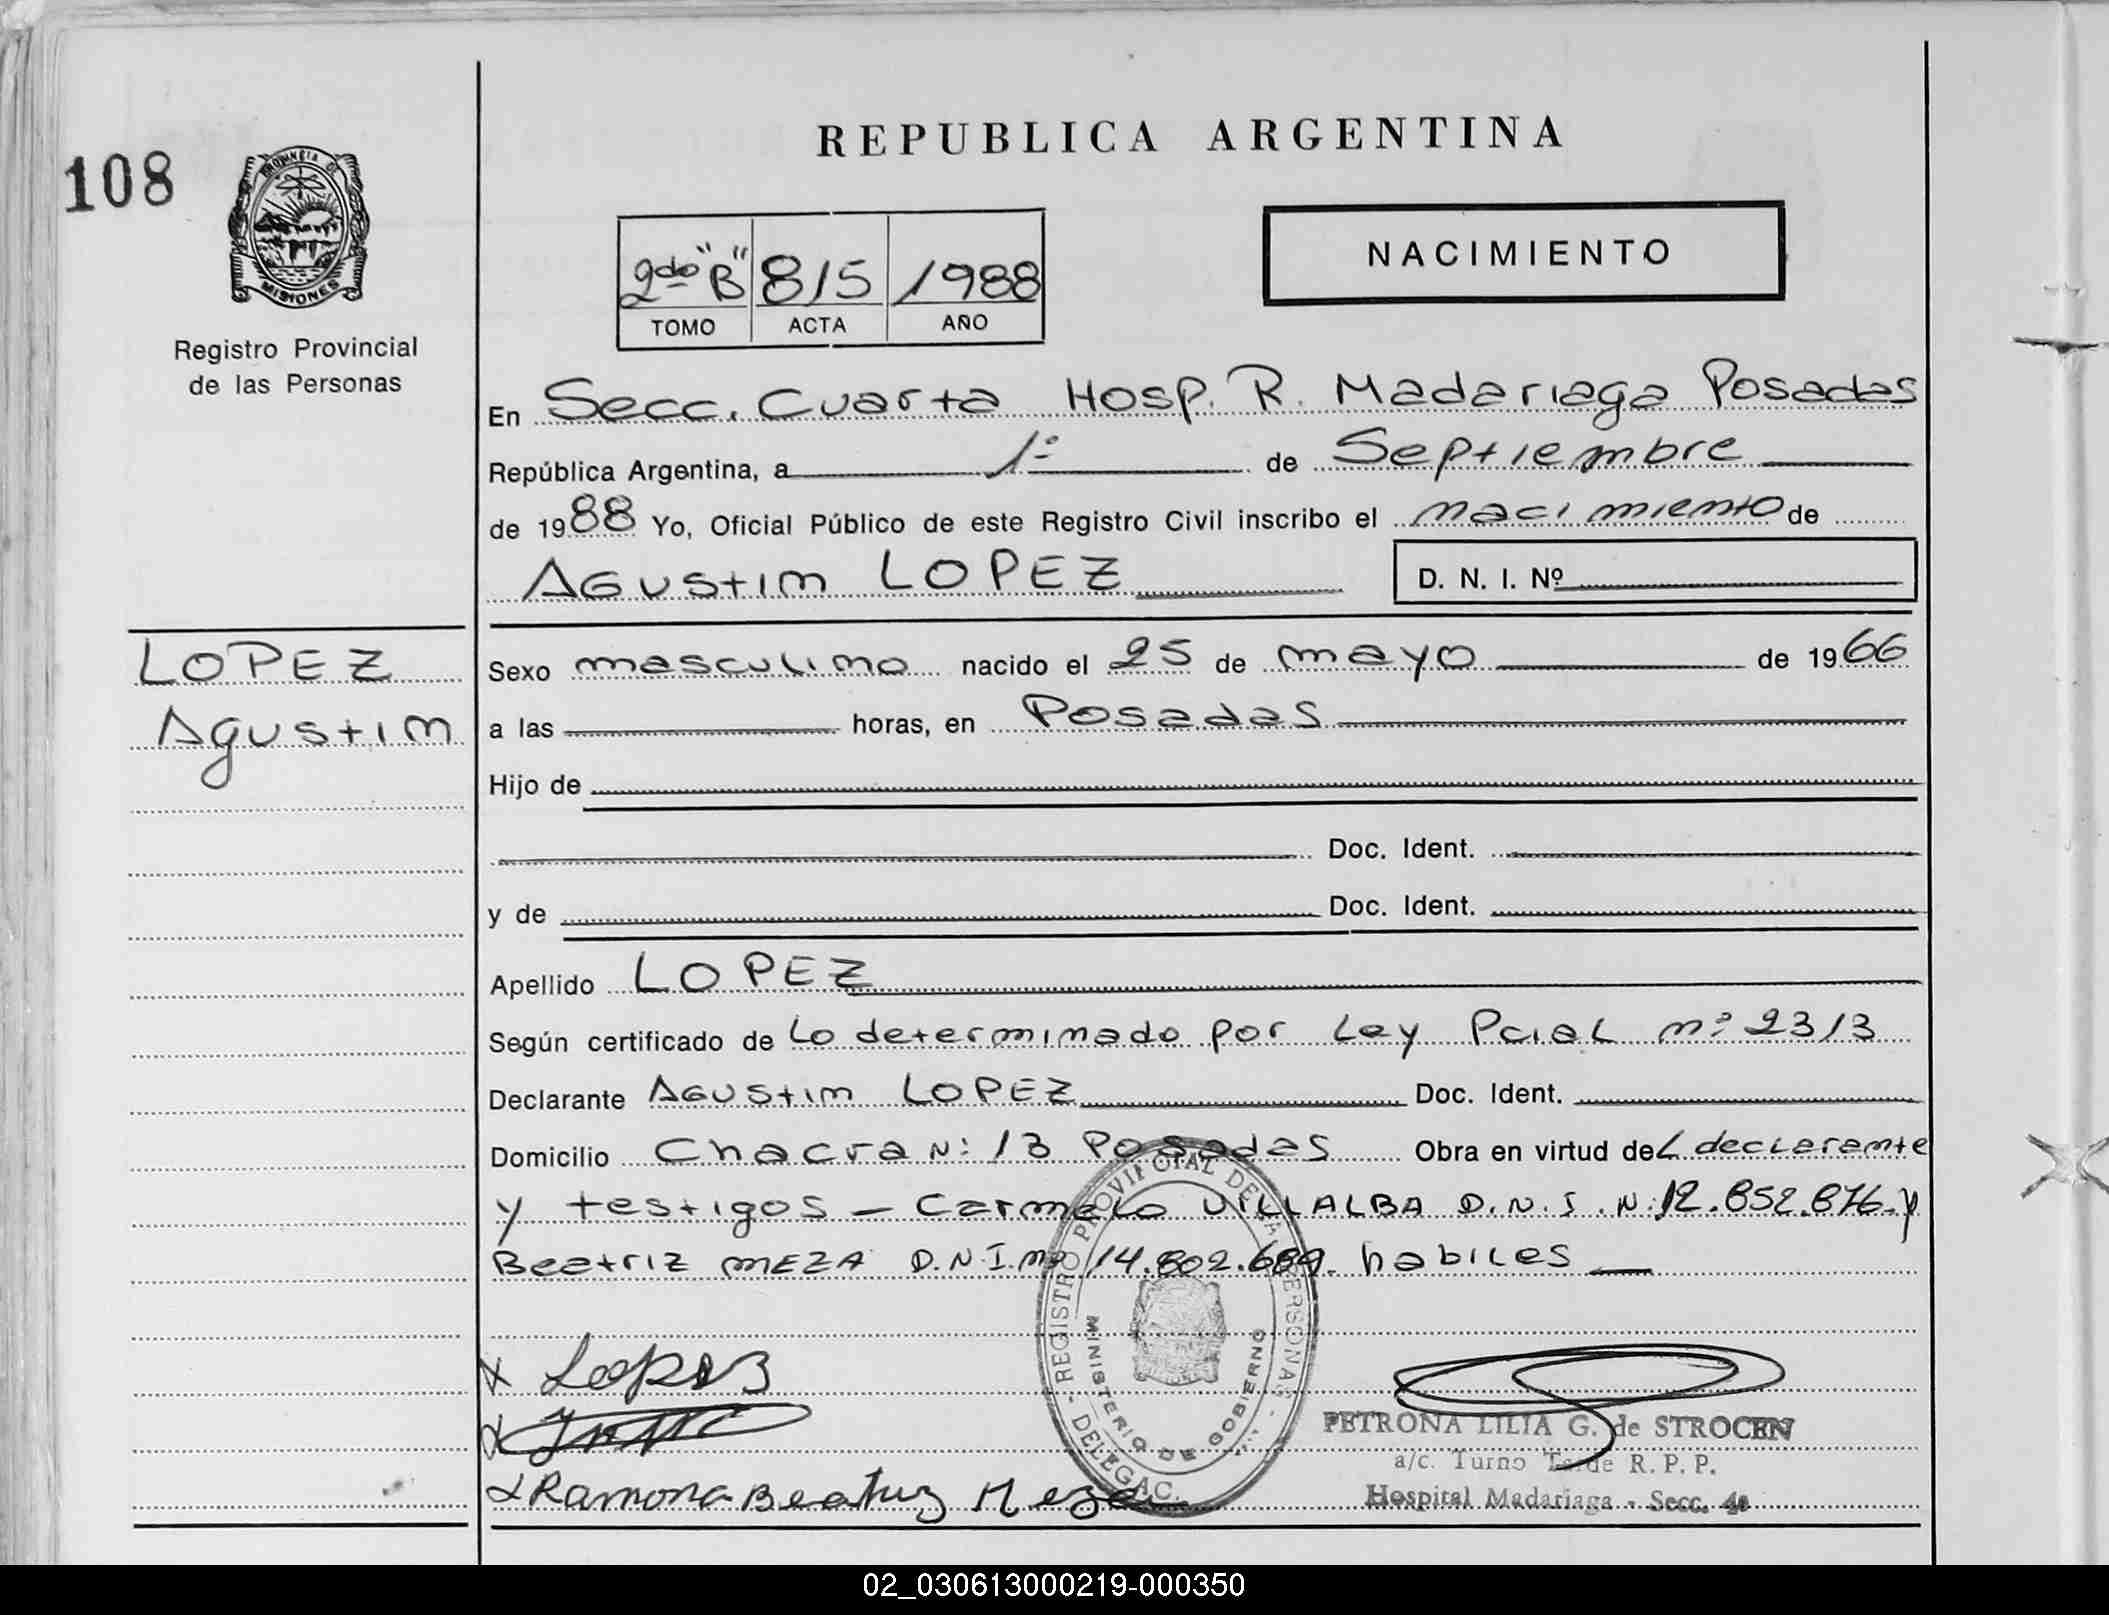 108
PROVINCIA DE
MISIONES
Registro Provincial
de las Personas
REPUBLICA ARGENTINA
NACIMIENTO
2do "B" 815 1988
TOMO ACTA AÑO
En Secc. Cuarta Hosp. R. Madariaga Posadas
República Argentina, a 1º de Septiembre
de 1988 Yo, Oficial Público de este Registro Civil inscribo el nacimiento de
AGUSTIN LOPEZ D. N. I. Nº
LOPEZ
Agustin
Sexo masculino nacido el 25 de mayo de 1966
a las horas, en Posadas
Hijo de
Doc. Ident.
y de Doc. Ident.
Apellido LOPEZ
Según certificado de Lo determinado por Ley Pcial nº 2313
Declarante AGUSTIN LOPEZ Doc. Ident.
Domicilio Chacra N: 13 Posadas Obra en virtud del declarante
y testigos – Carmelo VILLALBA D.N.I. N: 12.852.876. y
Beatriz MEZA D.N.I. nº 14.802.689. habiles
REGISTRO PROVINCIAL DE LAS PERSONAS - DELEGAC.
MINISTERIO DE GOBIERNO
x Lopez
x Ramona Beatriz Meza
PETRONA LILIA G. de STROCEN
a/c. Turno Tarde R. P. P.
Hospital Madariaga - Secc. 4a
02_030613000219-000350